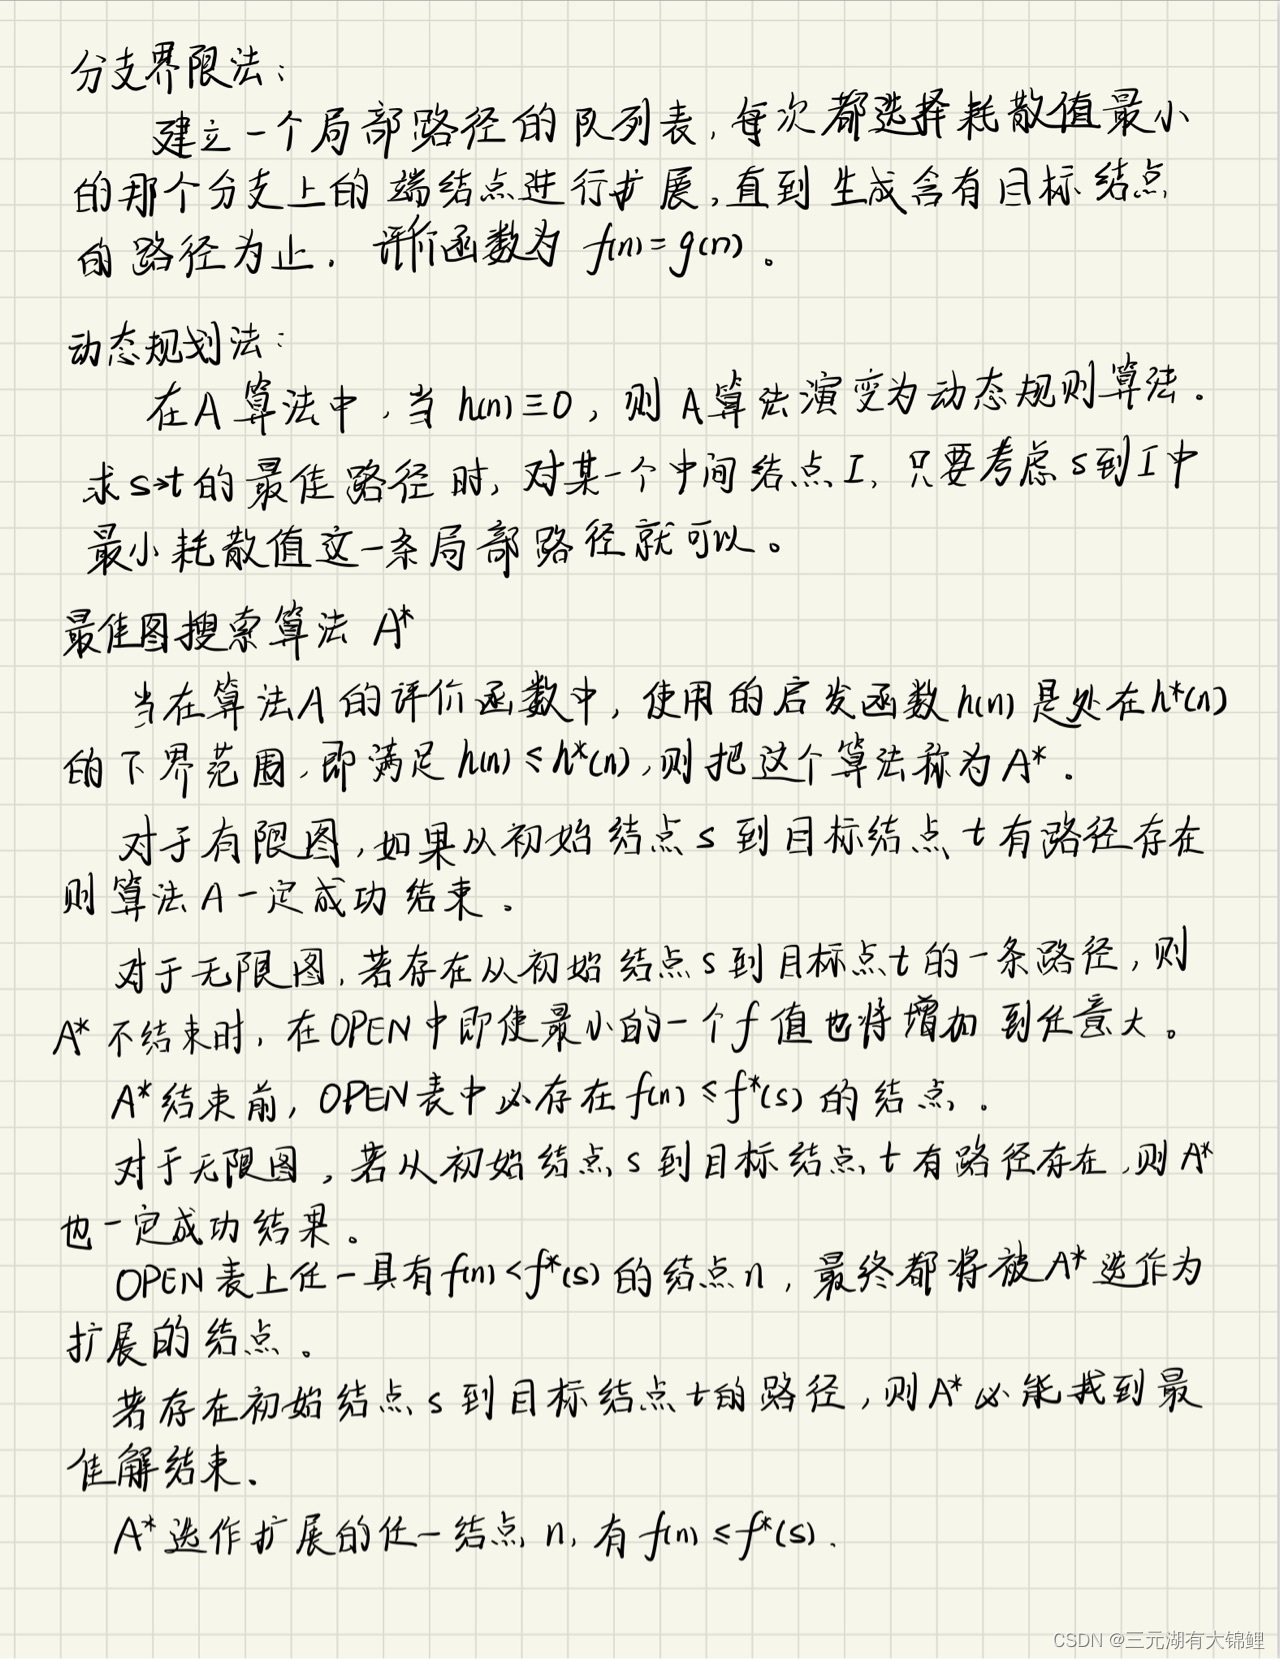 分支界限法：
建立一个局部路径的队列表，每次都选择耗散值最小
的那个分支上的端结点进行扩展，直到生成含有目标结点
的路径为止．评价函数为 f(n)=g(n)。
动态规划法：
在A算法中，当 h(n)≡0，则A算法演变为动态规则算法．
求s→t的最佳路径时，对某一个中间结点I，只要考虑s到I中
最小耗散值这一条局部路径就可以。
最佳图搜索算法 A*
当在算法A的评价函数中，使用的启发函数h(n)是处在h*(n)
的下界范围，即满足h(n)≤h*(n)，则把这个算法称为A*．
对于有限图，如果从初始结点s到目标结点t有路径存在
则算法A一定成功结束．
对于无限图，若存在从初始结点s到目标点t的一条路径，则
A*不结束时，在OPEN中即使最小的一个f值也将增加到任意大。
A*结束前，OPEN表中必存在f(n)≤f*(s)的结点．
对于无限图，若从初始结点s到目标结点t有路径存在，则A*
也一定成功结果。
OPEN表上任一具有f(n)<f*(s)的结点n，最终都将被A*选作为
扩展的结点。
若存在初始结点s到目标结点t的路径，则A*必能找到最
佳解结束．
A*选作扩展的任一结点n，有f(n)≤f*(s)．
CSDN @三元湖有大锦鲤